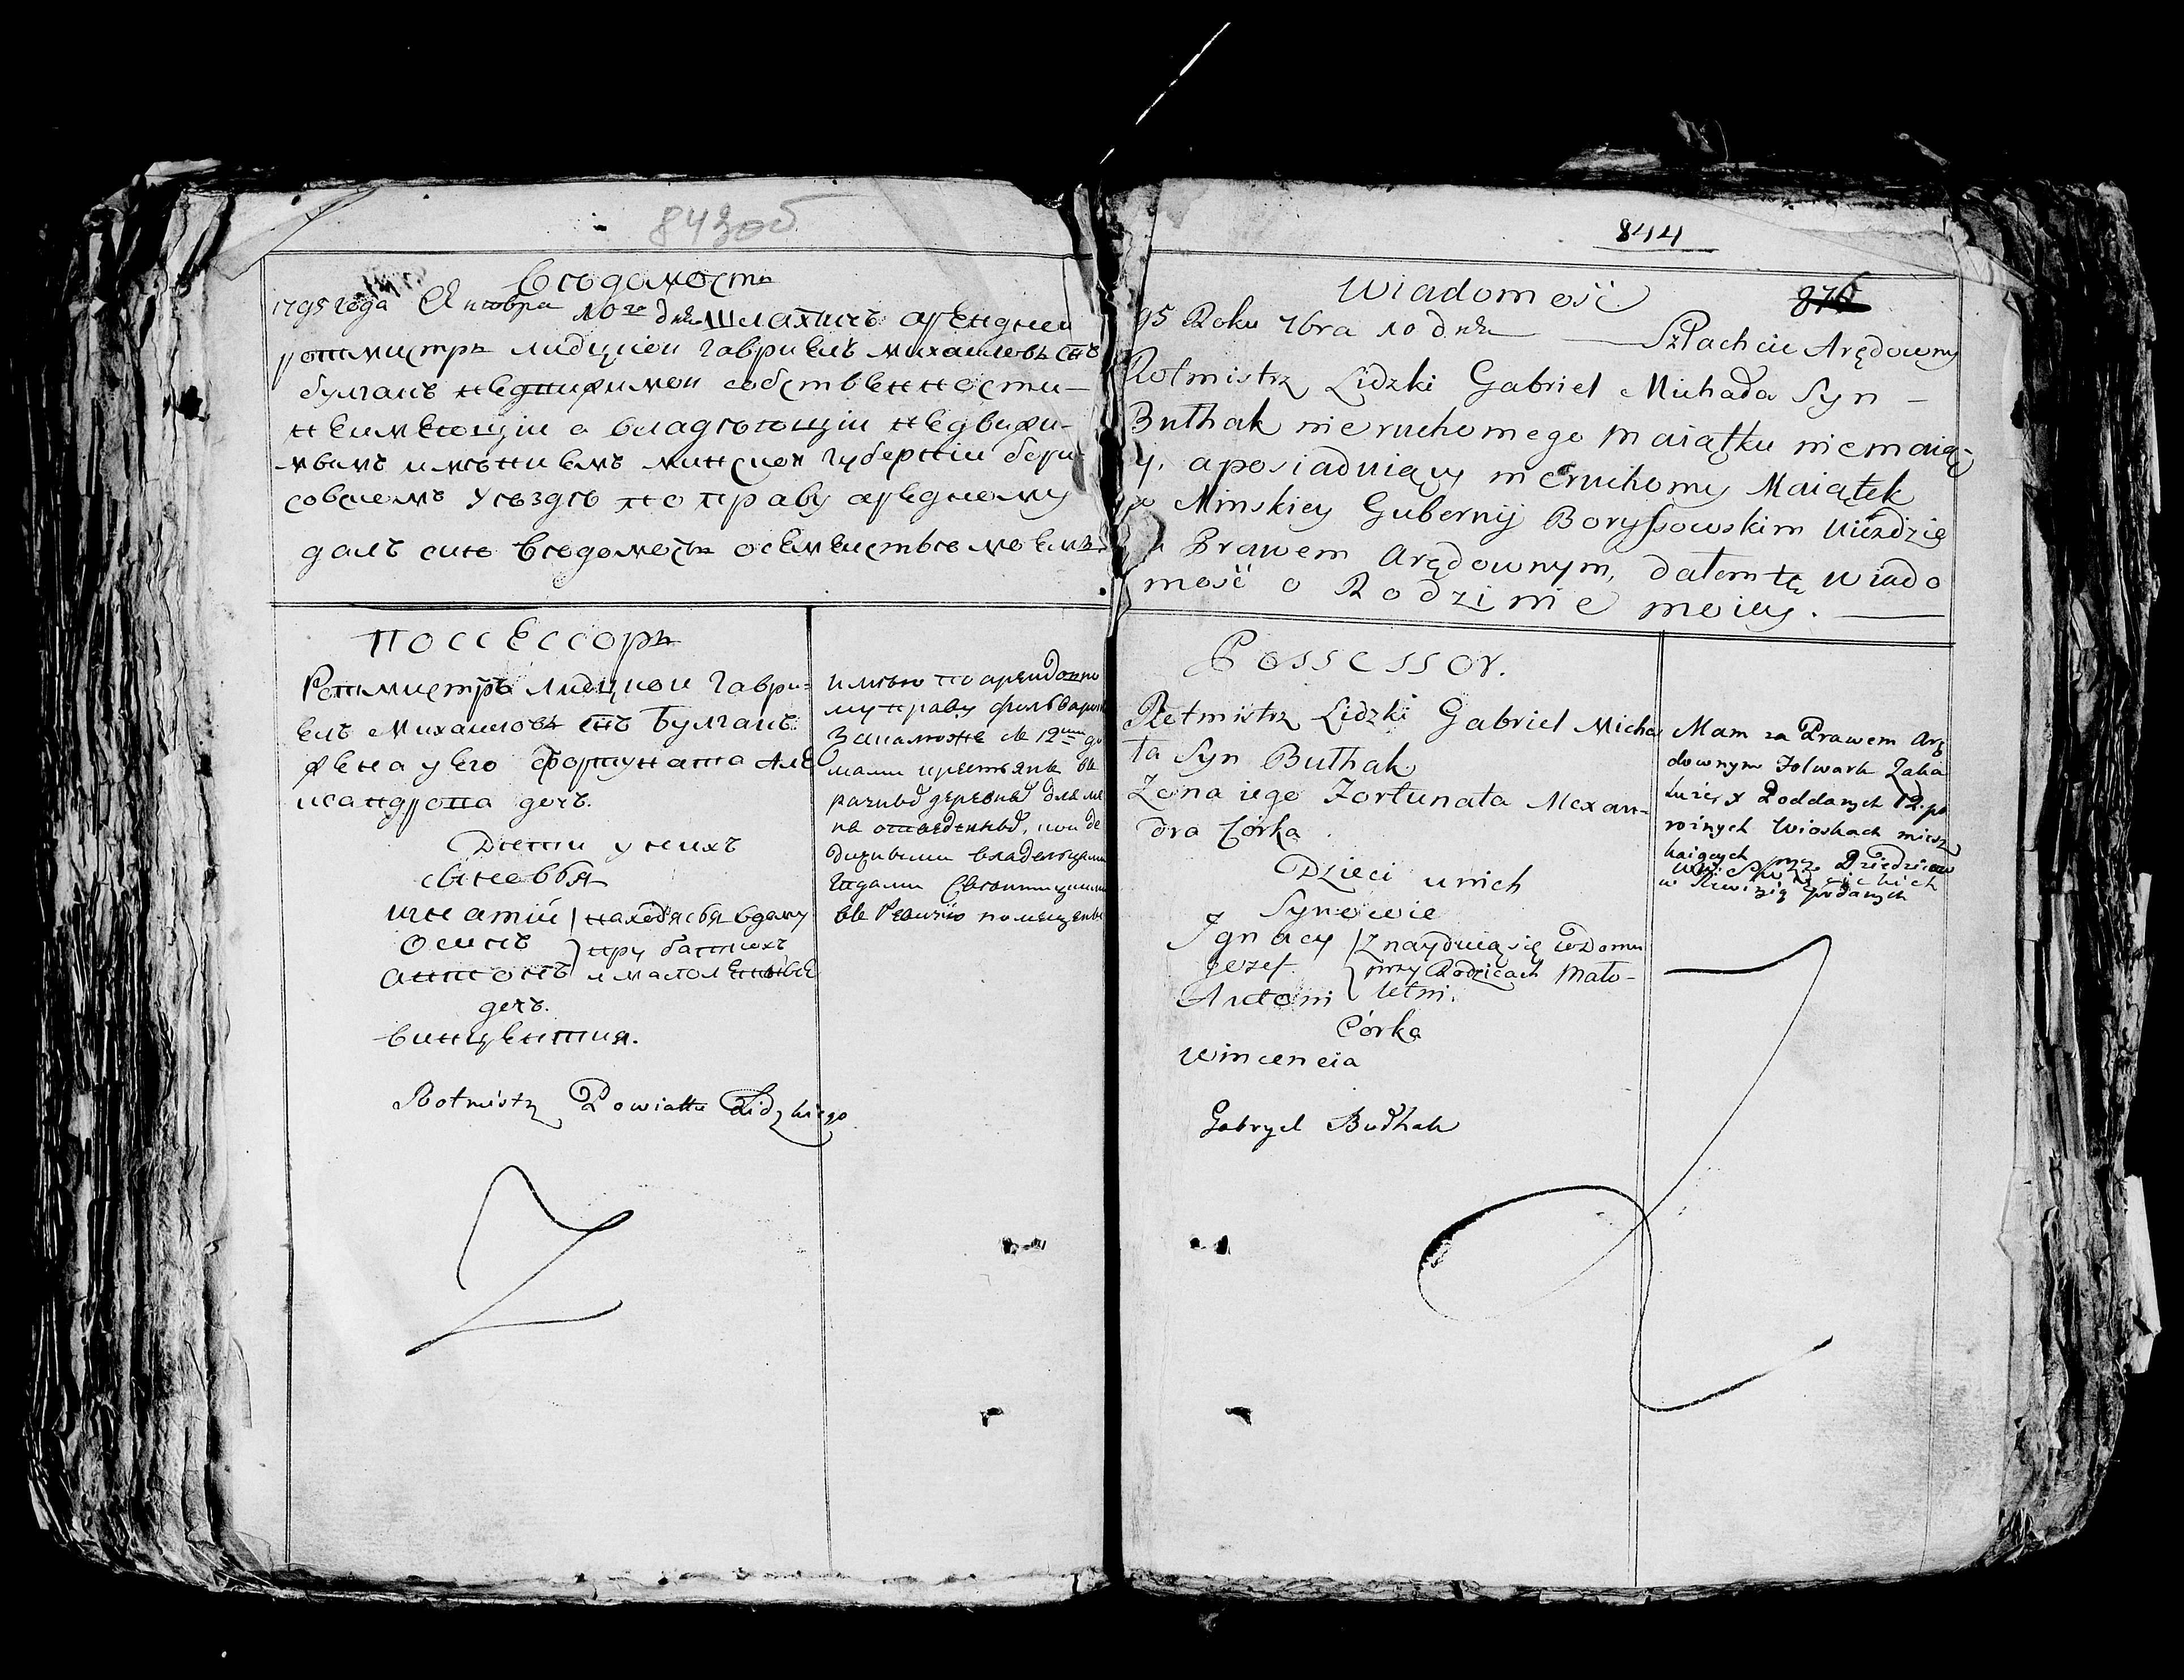 843об
Вѣдомость
1795 года Октобра 10го дня Шляхтичъ арендней
ротмистръ лидцкои гавриелъ михаиловъ снъ
булгакъ недвижимои собственности
неимеющiи а владѣющiи недвижи-
мымъ имѣниемъ минской губернiи бори-
совскомъ уѣздѣ по праву аредному
далъ сию вѣдомость осемеиствѣ моемъ
Поссессоръ
Ротмистръ лидцкои гаври-
елъ михаиловъ снъ булгакъ
жена у его фортуната але
ксандрона дочь.
Дѣти у нихъ
сыновья
игнатiй находясься вдому
осипъ при батькахъ
антонъ и малолѣтные
дочь.
винцентия.
имѣю по арендовно
му праву фольварокъ
Закалюже съ 12ти до
мами крестьянъ въ
разныхъ деревняхъ
владельцами
въ Ревизiю
Rotmistrz Powiattu Lidzkiego
844
876
Wiadomość
95 Roku 7bra 10 dnia Szlachcic Arędowny
Rotmistrz Lidzki Gabriel Michała Syn
Bułhak nieruchomego maiątku niemaią-
cy, a posiaduiący nieruchomy Maiątek
w Minskiey Gubernij Boryssowskim Uiezdzie
Prawem Arędownym, dałem tę wiado
mość o Rodzinie moiey.
Possessor.
Rotmistrz Lidzki Gabriel Micha
ła Syn Bułhak
Zona iego Fortunata Alexan-
dra Córka
Dzieci u nich
Synowie
Ignacy Znayduią się w Domu
Jozef przy Rodzicach Mało-
Antoni letni.
Córka
Wincencia
Mam za Prawem Arę
downym Folwark Zaka
łuże, y Poddanych 12. po
roznych Wioskach miesz
kaiących przez Dziedzicow
w Rewizią podanych
Gabryel Bułhak